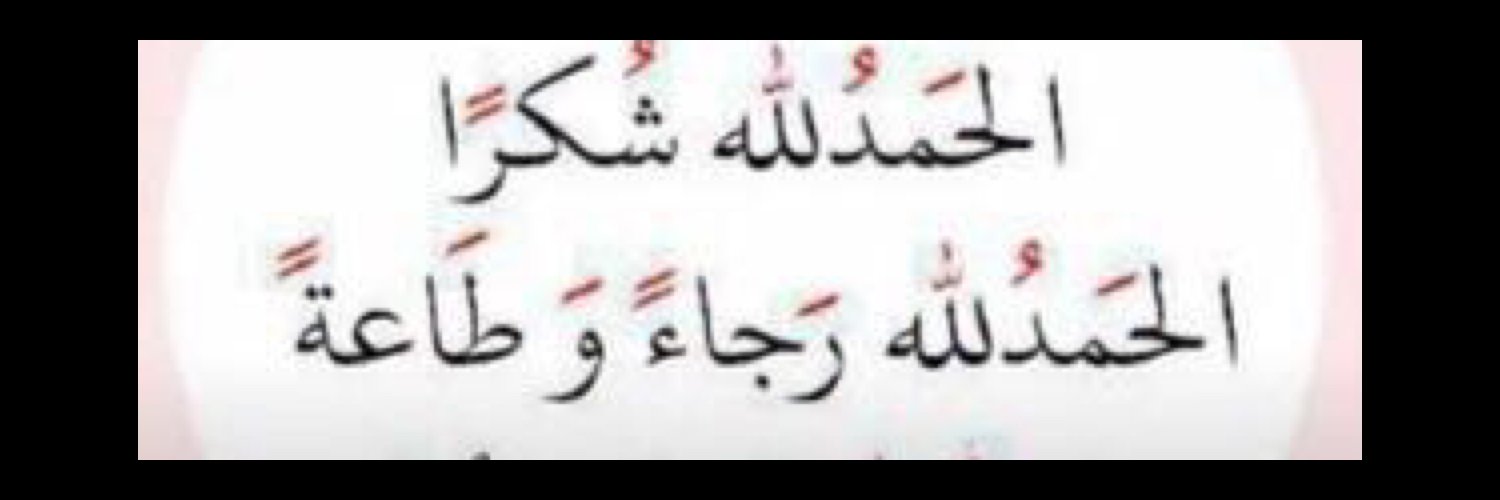 الحَمدُلله شُكرًا
الحَمدُلله رَجاءً وَ طَاعةً